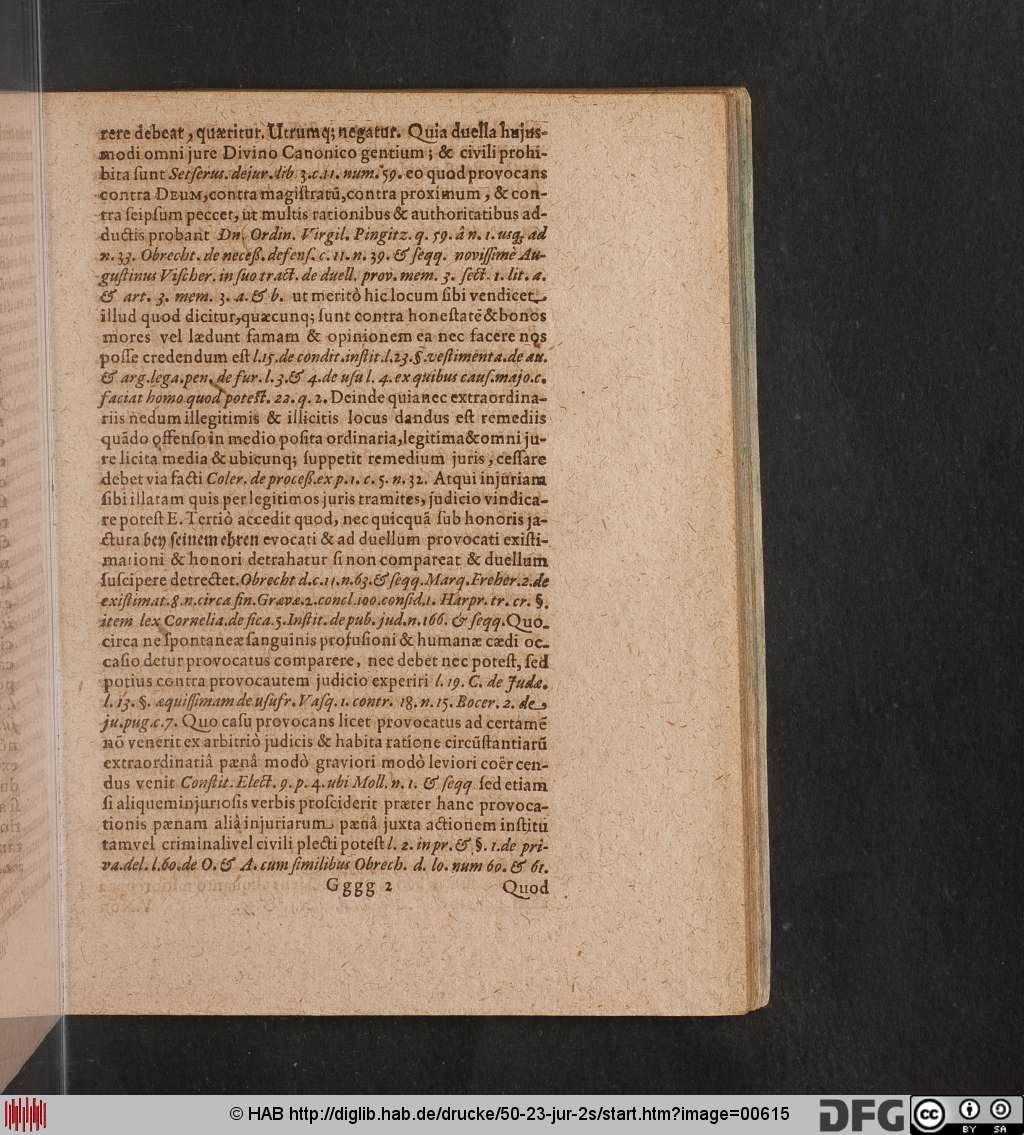 rere debeat, quæritur. Utrumq; negatur. Quia duella hujus-
modi omni jure Divino Canonico gentium; & civili prohi-
bita ſunt Setſerus. de jur. lib 3. c. 11. num. 59. eo quod provocans
contra DEUM, contra magiſtratū, contra proximum, & con-
tra ſeipſum peccet, ut multis rationibus & authoritatibus ad-
ductis probant Dn. Ordin. Virgil. Pingitz. q. 59. â n. 1. usq; ad
n. 33. Obrecht. de neceß. defenſ. c. 11. n. 39. & ſeqq. noviſſimè Au-
guſtinus Viſcher. in ſuo tract. de duell. prov. mem. 3. ſect. 1. lit. a.
& art. 3. mem. 3. a. & b. ut meritò hic locum ſibi vendicet
illud quod dicitur, quæcunq; ſunt contra honeſtatē & bonos
mores vel lædunt famam & opinionem ea nec facere nos
poſſe credendum eſt l. 15. de condit. inſtit. l. 23. §. veſtimenta. de au.
& arg. lega. pen. de fur. l. 3. & 4. de uſu l. 4. ex quibus cauſ. majo. c.
faciat homo quod poteſt. 22. q. 2. Deinde quia nec extraordina-
riis nedum illegitimis & illicitis locus dandus eſt remediis
quādo offenſo in medio poſita ordinaria, legitima & omni ju-
re licita media & ubicunq; ſuppetit remedium juris, ceſſare
debet via facti Coler. de proceß. ex p. 1. c. 5. n. 32. Atqui injuriam
ſibi illatam quis per legitimos juris tramites, judicio vindica-
re poteſt E. Tertiò accedit quod, nec quicquā ſub honoris ja-
ctura bey ſeinem ehren evocati & ad duellum provocati exiſti-
mationi & honori detrahatur ſi non compareat & duellum
ſuſcipere detrectet. Obrecht d. c. 11. n. 63. & ſeqq. Marq. Freher. 2. de
exiſtimat. 8. n. circa fin. Gravæ. 2. concl. 100. conſid. 1. Harpr. tr. cr. §.
item lex Cornelia. de ſica. 5. Inſtit. de pub. jud. n. 166. & ſeqq. Quo-
circa ne ſpontaneæ ſanguinis profuſioni & humanæ cædi oc-
caſio detur provocatus comparere, nec debet nec poteſt, ſed
potius contra provocautem judicio experiri l. 19. C. de Judæ.
l. 13. §. æquiſſimam de uſufr. Vaſq. 1. contr. 18. n. 15. Bocer. 2. de
ju. pug. c. 7. Quo caſu provocans licet provocatus ad certamē
nō venerit ex arbitriò judicis & habita ratione circūſtantiarū
extraordinariâ pænâ modò graviori modò leviori coërcen-
dus venit Conſtit. Elect. 9. p. 4. ubi Moll. n. 1. & ſeqq ſed etiam
ſi aliquem injurioſis verbis proſciderit præter hanc provoca-
tionis pænam aliâ injuriarum pænâ juxta actionem inſtitu
tam vel criminali vel civili plecti poteſt l. 2. in pr. & §. 1. de pri-
va. del. l. 60. de O. & A. cum ſimilibus Obrech. d. lo. num 60. & 61.
Gggg 2 Quod
© HAB http://diglib.hab.de/drucke/50-23-jur-2s/start.htm?image=00615
DFG
cc BY SA